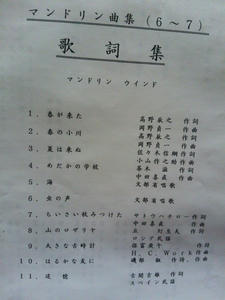 マンドリン曲集(6〜7)
歌詞集
マンドリン ウインド
1. 春が来た 高野辰之 作詞
岡野貞一 作曲
2. 春の小川 高野辰之 作詞
岡野貞一 作曲
3. 夏は来ぬ 佐々木信綱 作詞
小山作之助 作曲
4. めだかの学校 茶木 滋 作詞
中田喜直 作曲
5. 海 文部省唱歌
6. 虫の声 文部省唱歌
7. ちいさい秋みつけた サトウハチロー 作詞
中田喜直 作曲
8. 山のロザリア 丘 灯至夫 作詞
ロシア民謡
9. 大きな古時計 保富康午 作詞
H.C.Work 作曲
10. はるかな友に 磯部 俶 作詞、作曲
11. 追憶 古関吉雄 作詞
スペイン民謡